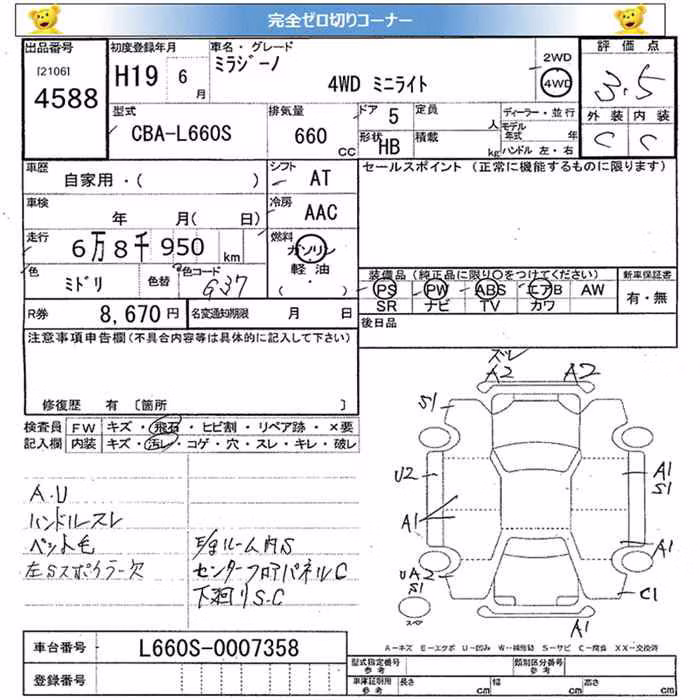 完全ゼロ切りコーナー
出品番号 初度登録年月 車名・グレード 2WD 評価点
[2106] H19 6月 ミラジーノ 4WD ミニライト 4WD 3.5
4588
型式 排気量 ドア 5 定員 人 ディーラー・並行 外装 内装
CBA-L660S 660 CC 形状 HB 積載 kg モデル年式 年 C C
ハンドル 左・右
車歴 シフト AT セールスポイント(正常に機能するものに限ります)
自家用・( )
車検 冷房 AAC
年 月( 日)
走行 燃料
6万8千950km ガソリン
軽油
( ・ )
色 ミドリ 色替 色コード G37
装備品(純正品に限り○をつけてください) 新車保証書
PS PW ABS エアB AW 有・無
SR ナビ TV カワ
R券 8,670円 名変通知期限 月 日 後日品
注意事項申告欄(不具合内容等は具体的に記入して下さい)
修復歴 有 〔箇所 〕
検査員 FW キズ・飛石・ヒビ割・リペア跡・×要
記入欄 内装 キズ・汚レ・コゲ・穴・スレ・キレ・破レ
A.U
ハンドルスレ
ペット毛
左Sスポイラー欠
ルーム内S
センターフロアパネルC
下廻りS.C
ズレ
A2 A2
S1
U2 A1
S1
A1 A1
UA2 C1
S1
スペア
A1
A-キズ E-エクボ U-凹み W-補修跡 S-サビ C-腐食 XX-交換済
車台番号 L660S-0007358
登録番号
型式指定番号 参考 類別区分番号 参考
車庫証明用 参考 長さ cm 幅 cm 高さ cm